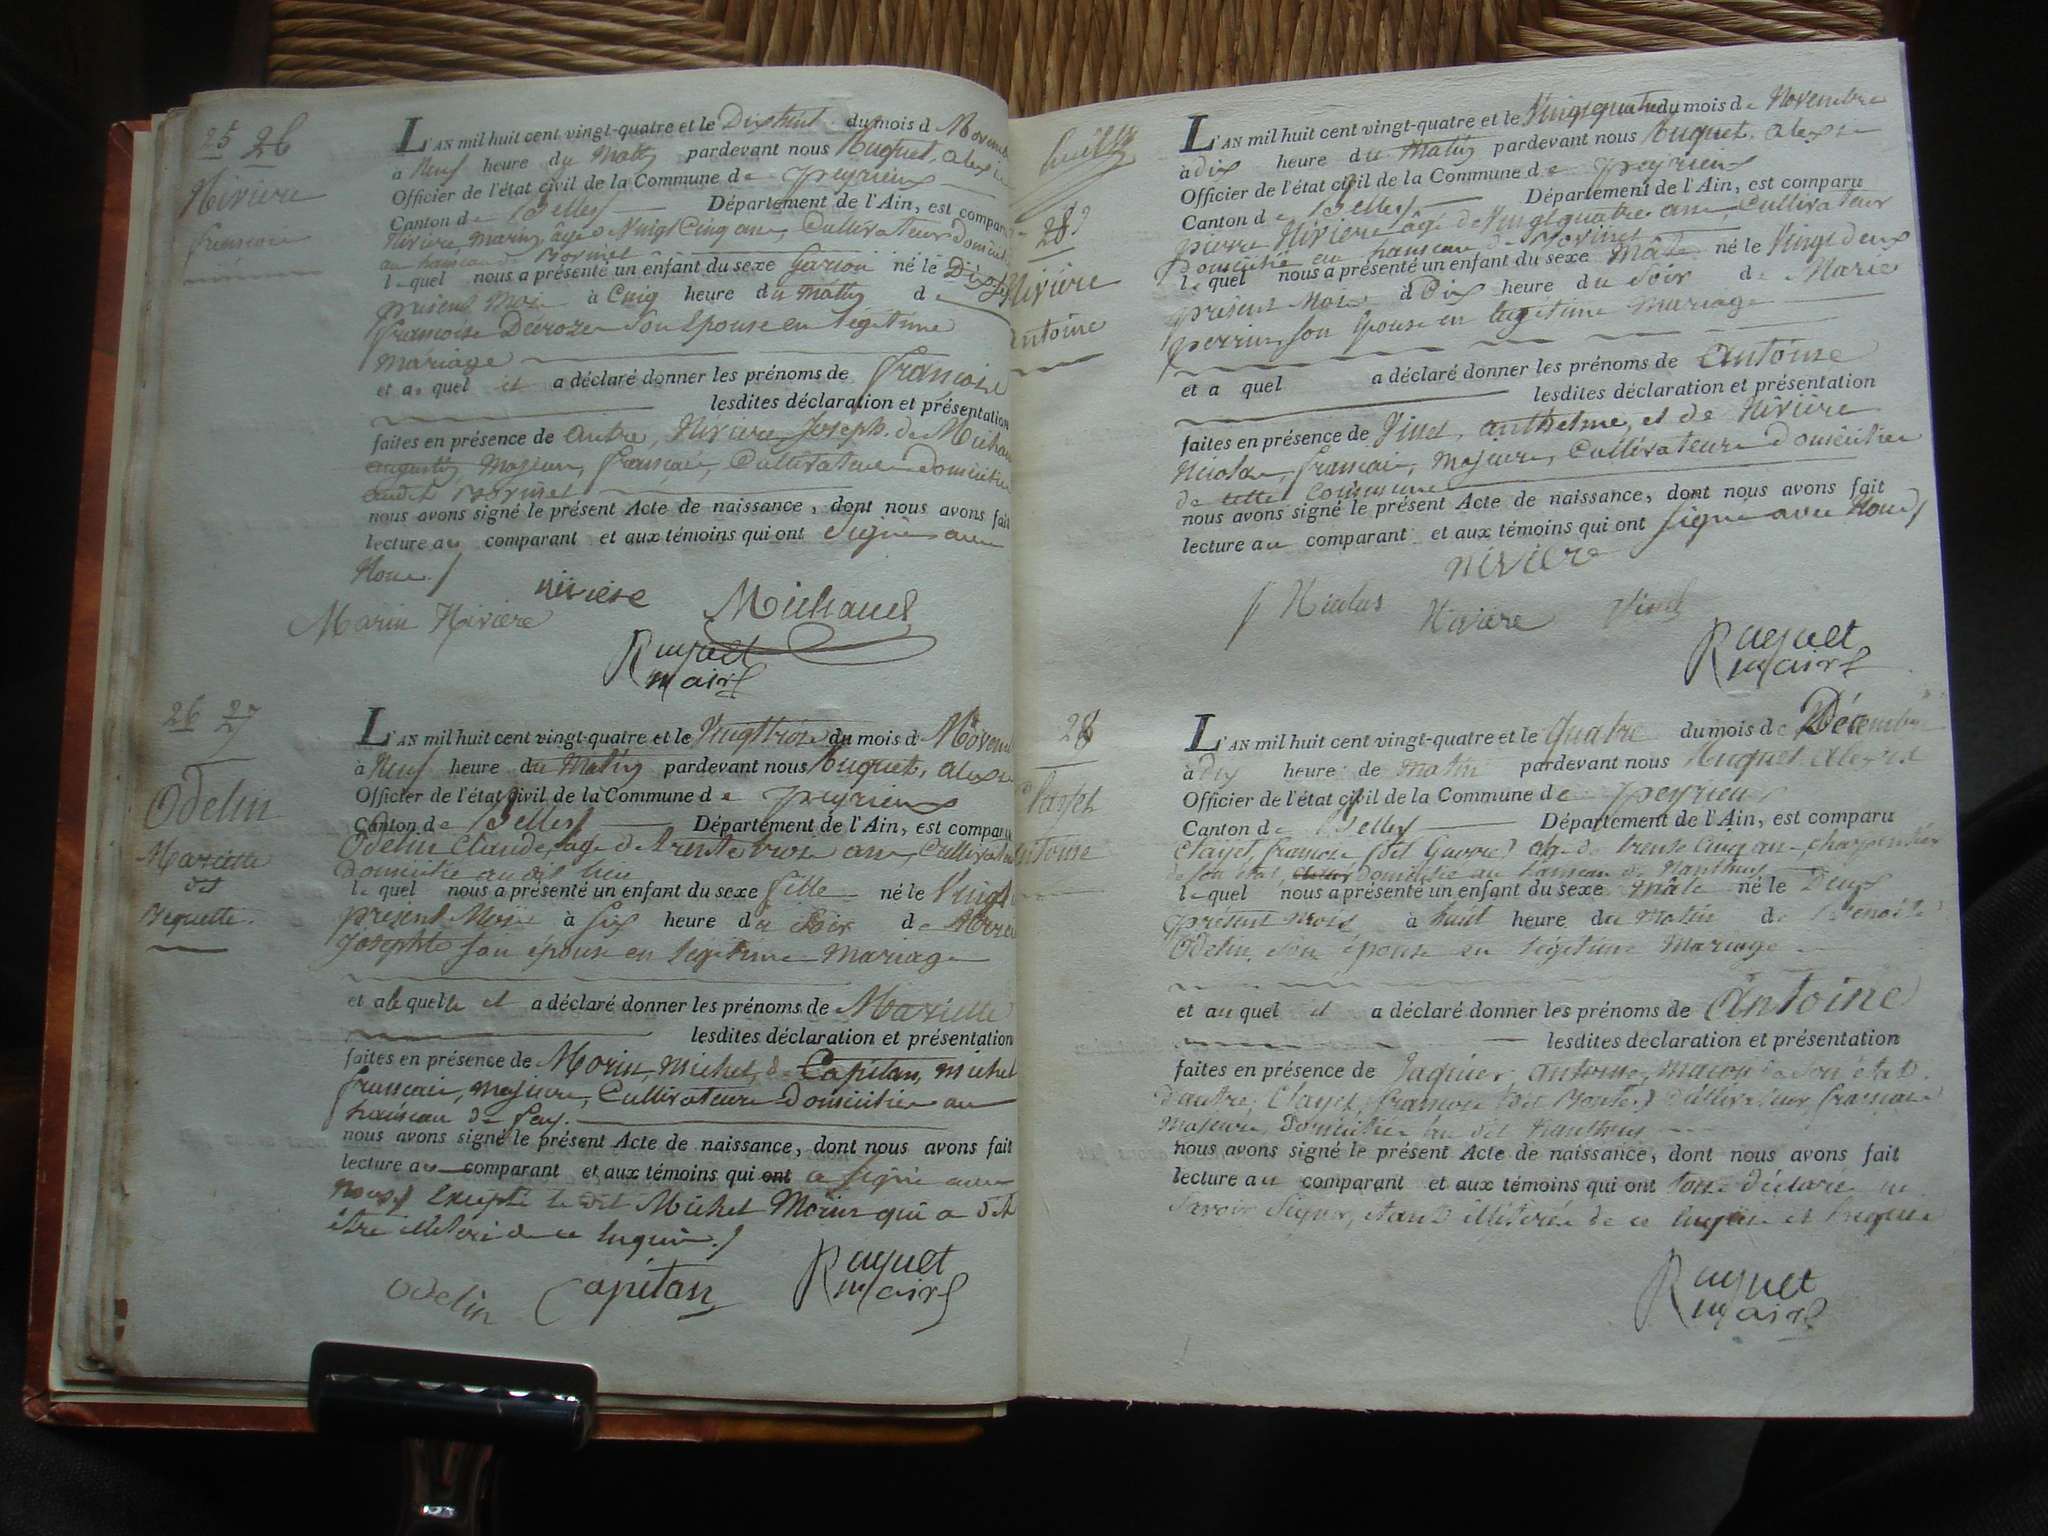 25 26
Nivière
françois
L'AN mil huit cent vingt-quatre et le Dixhuit du mois d Novemb
à Neuf heure du Matin pardevant nous Ruguet, alexis
Officier de l'état civil de la Commune de peyrieux
Canton de Belley Département de l'Ain, est comparu
Nivière, Marin, âgé de Vingt Cinq ans, Cultivateur domicilié
au hameau de
le quel nous a présenté un enfant du sexe Garçon né le Dix
présent Mois à Cinq heure du Matin de
françoise son Epouse en légitime
mariage
et a quel il a déclaré donner les prénoms de françois
lesdites déclaration et présentation
faites en présence de autre, Nivière, Joseph. de Michau
augustin Majeurs, français, Cultivateurs domiciliés
audit
nous avons signé le présent Acte de naissance, dont nous avons fait
lecture au comparant et aux témoins qui ont Signés avec
Nous./
nivière Michaud
Marin Nivière
Ruguet
maire
26 27
Odelin
Mariette
dit
L'AN mil huit cent vingt-quatre et le Vingttrois du mois d Novem
à Neuf heure du Matin pardevant nous Ruguet, alexis
Officier de l'état civil de la Commune de peyrieux
Canton de Belley Département de l'Ain, est comparu
Odelin Claude, agé de trente trois ans, Cultivateur
domicilié au dit lieu
le quel nous a présenté un enfant du sexe fille né le Vingt
présent Mois à six heure du Soir de
Josephte son épouse en légitime mariage
et a le quelle il a déclaré donner les prénoms de Mariette
lesdites déclaration et présentation
faites en présence de Morin, Michel, de Capitan, michel
français, majeurs, Cultivateurs domiciliés au
hameau de fay.
nous avons signé le présent Acte de naissance, dont nous avons fait
lecture au comparant et aux témoins qui ont a signé avec
Nous, Excepté le dit Michel Morin qui a dit
être illétéré de ce enquis./
Odelin Capitan Ruguet
maire
28
Nivière
antoine
L'AN mil huit cent vingt-quatre et le Vingtquatre du mois de Novembre
à dix heure du Matin pardevant nous Ruguet, alexis
Officier de l'état civil de la Commune de peyrieux
Canton de Belley Département de l'Ain, est comparu
pierre Nivière âgé de Vingt quatre ans, Cultivateur
domicilié au hameau de
le quel nous a présenté un enfant du sexe Mâle né le Vingt deux
présent Mois à Dix heure du Soir de Marie
perrin, son Epouse en légitime Mariage
et a quel a déclaré donner les prénoms de Antoine
lesdites déclaration et présentation
faites en présence de Vinet, anthelme, et de Nivière
Nicolas, français, Majeurs, Cultivateurs domiciliés
de cette Commune
nous avons signé le présent Acte de naissance, dont nous avons fait
lecture au comparant et aux témoins qui ont signé avec Nous/
nivière
Nicolas Nivière Vinet
Ruguet
maire
28
antoine
L'AN mil huit cent vingt-quatre et le Quatre du mois de Décembre
à dix heure de matin pardevant nous Ruguet Alexis
Officier de l'état civil de la Commune de peyrieu
Canton de Belley Département de l'Ain, est comparu
Clayet, françois (dit Guerre) agé de trente cinq ans, charpentier
de son état, domicilié au hameau de Nanthuy
le quel nous a présenté un enfant du sexe mâle né le Deux
présent mois à huit heure du Matin de
Odelin, son épouse en légitime Mariage
et au quel il a déclaré donner les prénoms de Antoine
lesdites declaration et présentation
faites en présence de Jaquier, antoine, Maçon de son état.
d'autre, Clayet, françois cultivateur, français
Majeurs, Domiciliés au dit Nanthuy
nous avons signé le présent Acte de naissance, dont nous avons fait
lecture au comparant et aux témoins qui ont tous déclaré ne
Savoir Signer, étant illétérés de ce enquis et requis
Ruguet
maire